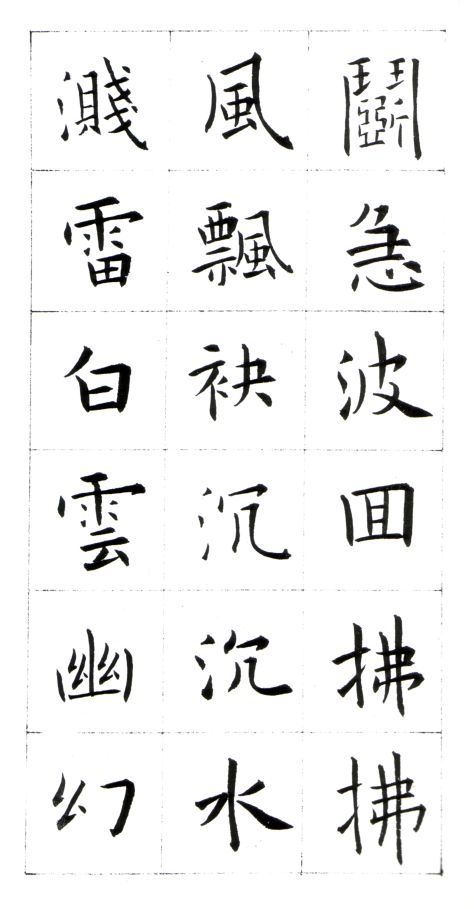 鬭急波囬拂拂
風飄袂沉沉水
濺雷白雲幽幻